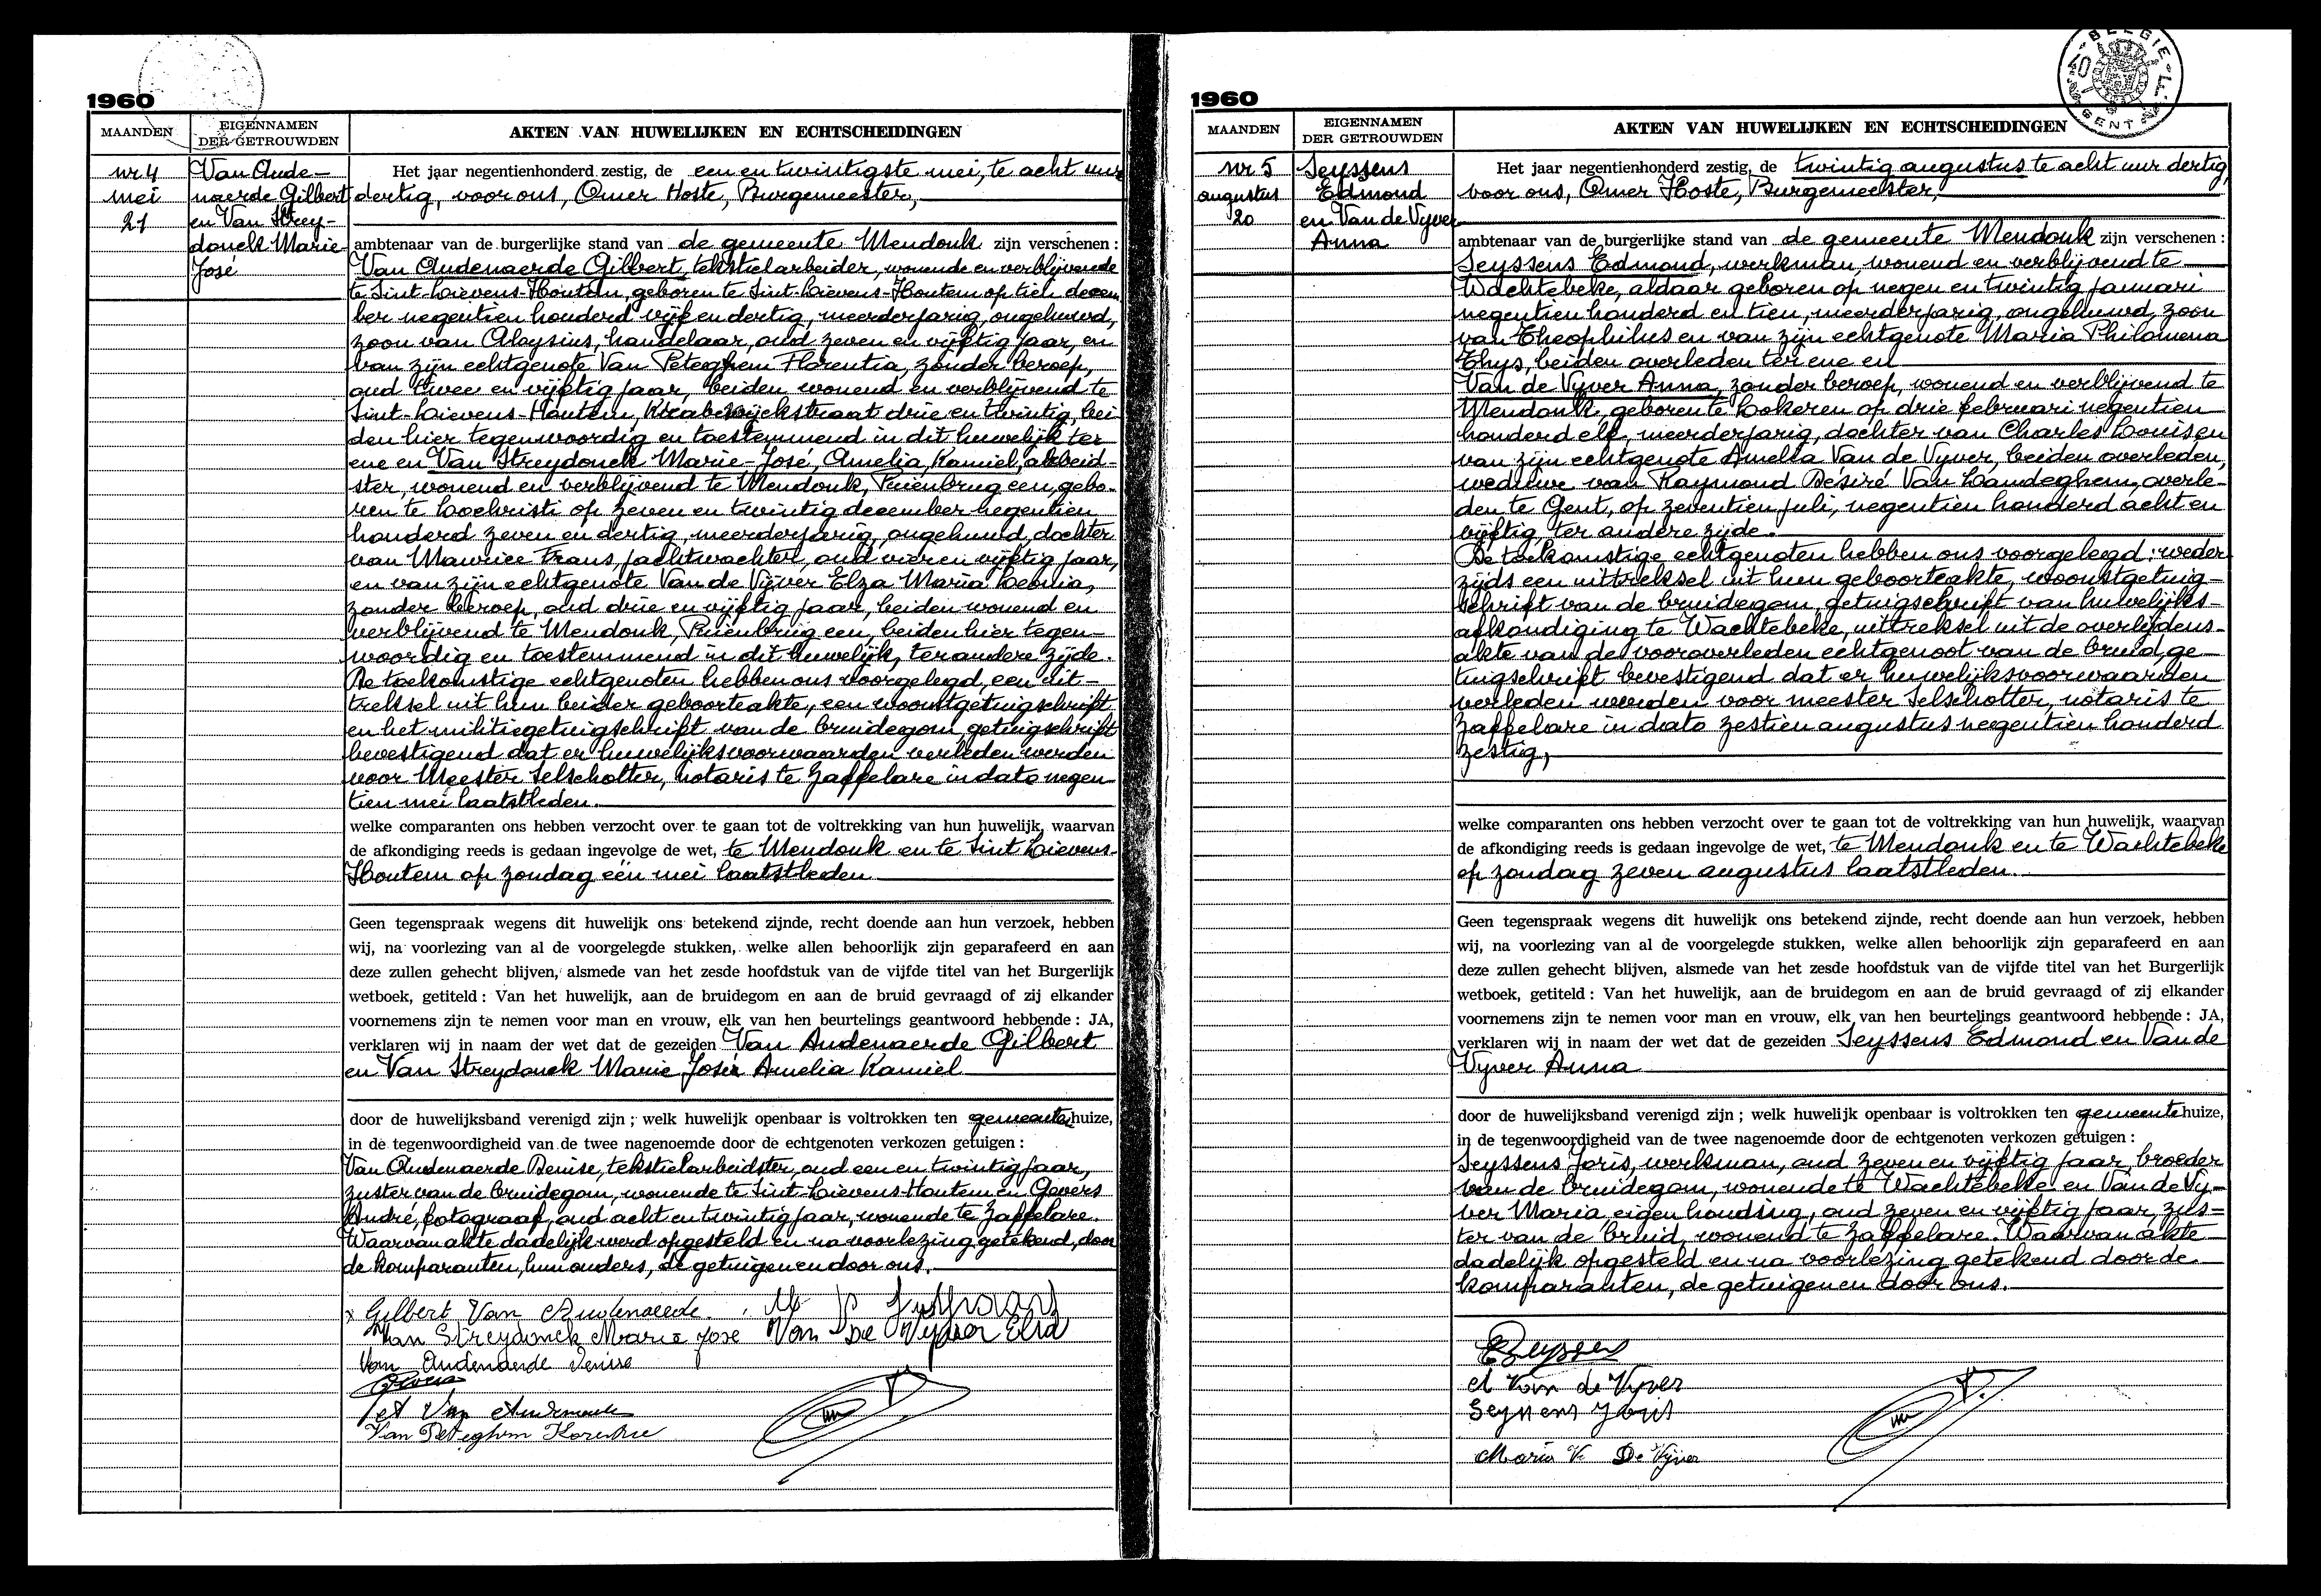 1960
MAANDEN
EIGENNAMEN
DER GETROUWDEN
AKTEN VAN HUWELIJKEN EN ECHTSCHEIDINGEN
nr 4
mei
21
Van Aude-
naerde Gilbert
en Van Strey-
donck Marie-
José
Het jaar negentienhonderd zestig, de een en twintigste mei, te acht uur
dertig, voor ons, Omer Hoste, Burgemeester,
ambtenaar van de burgerlijke stand van de gemeente Mendonk zijn verschenen :
Van Audenaerde Gilbert, tekstielarbeider, wonende en verblijvende
te Sint-Lievens-Houtem, geboren te Sint-Lievens-Houtem op tien decem
ber negentien honderd vijf en dertig, meerderjarig, ongehuwd,
zoon van Aloysius, handelaar, oud zeven en vijftig jaar, en
van zijn echtgenote Van Peteghem Florentia, zonder beroep,
oud twee en vijftig jaar, beiden wonend en verblijvend te
Sint-Lievens-Houtem, straat drie en twintig, bei-
den hier tegenwoordig en toestemmend in dit huwelijk ter
ene en Van Streydonck Marie-José, Amelia, Kamiel, arbeid-
ster, wonend en verblijvend te Mendonk, Puienbrug een, gebo-
ren te Lochristi op zeven en twintig december negentien
honderd zeven en dertig, meerderjarig, ongehuwd, dochter
van Maurice Frans, jachtwachter, oud vier en vijftig jaar,
en van zijn echtgenote Van de Vijver Elza Maria Leonia,
zonder beroep, oud drie en vijftig jaar, beiden wonend en
verblijvend te Mendonk, Puienbrug een, beiden hier tegen-
woordig en toestemmend in dit huwelijk, ter andere zijde.
De toekomstige echtgenoten hebben ons voorgelegd, een uit-
treksel uit hun beider geboorteakte, een woonstgetuigschrift
en het militiegetuigschrift van de bruidegom, getuigschrift
bevestigend dat er huwelijksvoorwaarden verleden werden
voor Meester Selschotter, notaris te Zaffelare in dato negen-
tien mei laatstleden.
welke comparanten ons hebben verzocht over te gaan tot de voltrekking van hun huwelijk, waarvan
de afkondiging reeds is gedaan ingevolge de wet, te Mendonk en te Sint Lievens-
Houtem op zondag één mei laatstleden
Geen tegenspraak wegens dit huwelijk ons betekend zijnde, recht doende aan hun verzoek, hebben
wij, na voorlezing van al de voorgelegde stukken, welke allen behoorlijk zijn geparafeerd en aan
deze zullen gehecht blijven, alsmede van het zesde hoofdstuk van de vijfde titel van het Burgerlijk
wetboek, getiteld : Van het huwelijk, aan de bruidegom en aan de bruid gevraagd of zij elkander
voornemens zijn te nemen voor man en vrouw, elk van hen beurtelings geantwoord hebbende : JA,
verklaren wij in naam der wet dat de gezeiden Van Audenaerde Gilbert
en Van Streydonck Marie José Amelia Kamiel
door de huwelijksband verenigd zijn ; welk huwelijk openbaar is voltrokken ten gemeentehuize,
in de tegenwoordigheid van de twee nagenoemde door de echtgenoten verkozen getuigen :
Van Audenaerde Denise, tekstielarbeidster, oud een en twintig jaar,
zuster van de bruidegom, wonende te Sint Lievens-Houtem en Gevers
André, fotograaf, oud acht en twintig jaar, wonende te Zaffelare.
Waarvan akte dadelijk werd opgesteld en na voorlezing getekend, door
de komparanten, hun ouders, de getuigen en door ons.
x Gilbert Van Audenaerde.
Van Streydonck Marie José Van De Vijver Elza
Van Audenaerde Denise
Gevers
Van Peteghem
1960
BELGIE
GENT
MAANDEN
EIGENNAMEN
DER GETROUWDEN
AKTEN VAN HUWELIJKEN EN ECHTSCHEIDINGEN
nr 5
augustus
20
Seyssens
Edmond
en Van de Vyver
Anna
Het jaar negentienhonderd zestig, de twintig augustus te acht uur dertig,
voor ons, Omer Hoste, Burgemeester,
ambtenaar van de burgerlijke stand van de gemeente Mendonk zijn verschenen :
Seyssens Edmond, werkman, wonend en verblijvend te
Wachtebeke, aldaar geboren op negen en twintig januari
negentien honderd en tien, meerderjarig, ongehuwd, zoon
van Theophilus en van zijn echtgenote Maria Philomena
Thys, beiden overleden ter ene en
Van de Vyver Anna, zonder beroep, wonend en verblijvend te
Mendonk, geboren te Lokeren op drie februari negentien
honderd elf, meerderjarig, dochter van Charles Louis en
van zijn echtgenote Amelia Van de Vyver, beiden overleden,
weduwe van Raymond Désiré Van Landeghem, overle-
den te Gent, op zeventien juli, negentien honderd acht en
vijftig, ter andere zijde.
De toekomstige echtgenoten hebben ons voorgelegd : weder
zijds een uittreksel uit hun geboorteakte, woonstgetuig-
schrift van de bruidegom, getuigschrift van huwelijks-
afkondiging te Wachtebeke, uittreksel uit de overlijdens-
akte van de vooroverleden echtgenoot van de bruid, ge-
tuigschrift bevestigend dat er huwelijksvoorwaarden
verleden werden voor meester Selschotter, notaris te
Zaffelare in dato zestien augustus negentien honderd
zestig,
welke comparanten ons hebben verzocht over te gaan tot de voltrekking van hun huwelijk, waarvan
de afkondiging reeds is gedaan ingevolge de wet, te Mendonk en te Wachtebeke
op zondag zeven augustus laatstleden.
Geen tegenspraak wegens dit huwelijk ons betekend zijnde, recht doende aan hun verzoek, hebben
wij, na voorlezing van al de voorgelegde stukken, welke allen behoorlijk zijn geparafeerd en aan
deze zullen gehecht blijven, alsmede van het zesde hoofdstuk van de vijfde titel van het Burgerlijk
wetboek, getiteld : Van het huwelijk, aan de bruidegom en aan de bruid gevraagd of zij elkander
voornemens zijn te nemen voor man en vrouw, elk van hen beurtelings geantwoord hebbende : JA,
verklaren wij in naam der wet dat de gezeiden Seyssens Edmond en Van de
Vyver Anna
door de huwelijksband verenigd zijn ; welk huwelijk openbaar is voltrokken ten gemeentehuize,
in de tegenwoordigheid van de twee nagenoemde door de echtgenoten verkozen getuigen :
Seyssens Joris, werkman, oud zeven en vijftig jaar, broeder
van de bruidegom, wonende te Wachtebeke en Van de Vy-
ver Maria eigen houding, oud zeven en vijftig jaar, zus-
ter van de bruid, wonend te Zaffelare. Waarvan akte
dadelijk opgesteld en na voorlezing getekend door de
komparanten, de getuigen en door ons.
ESeyssens
A Van de Vyver
Seyssens Joris
Maria V. De Vijver